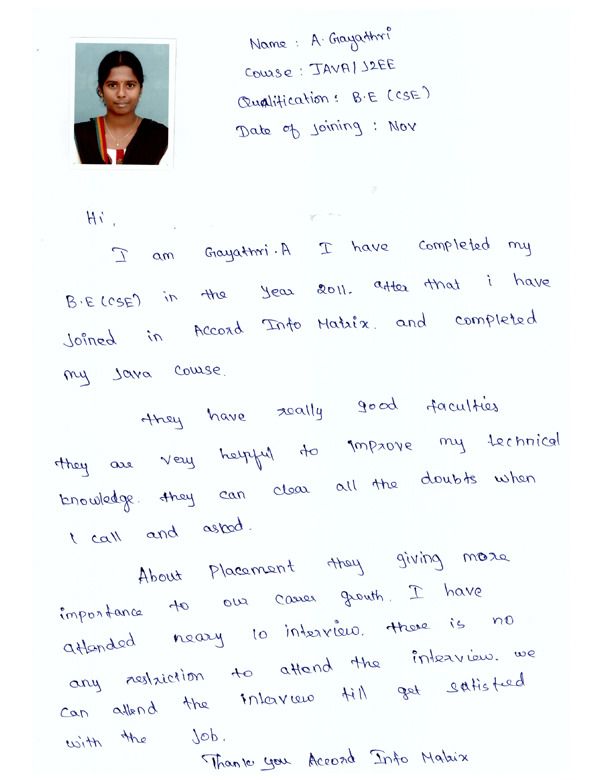 Name : A. Gayathri
Course : JAVA/J2EE
Qualification : B.E (CSE)
Date of Joining : Nov
Hi,
I am Gayathri.A I have completed my
B.E (CSE) in the year 2011. after that i have
joined in Accord Info Matrix. and completed
my Java course.
they have really good faculties
they are very helpful to improve my technical
knowledge. they can clear all the doubts when
I call and asked.
About Placement they giving more
importance to our career growth. I have
attended neary 10 interview. there is no
any restriction to attend the interview. we
can attend the interview till get satisfied
with the job.
Thank you Accord Info Matrix